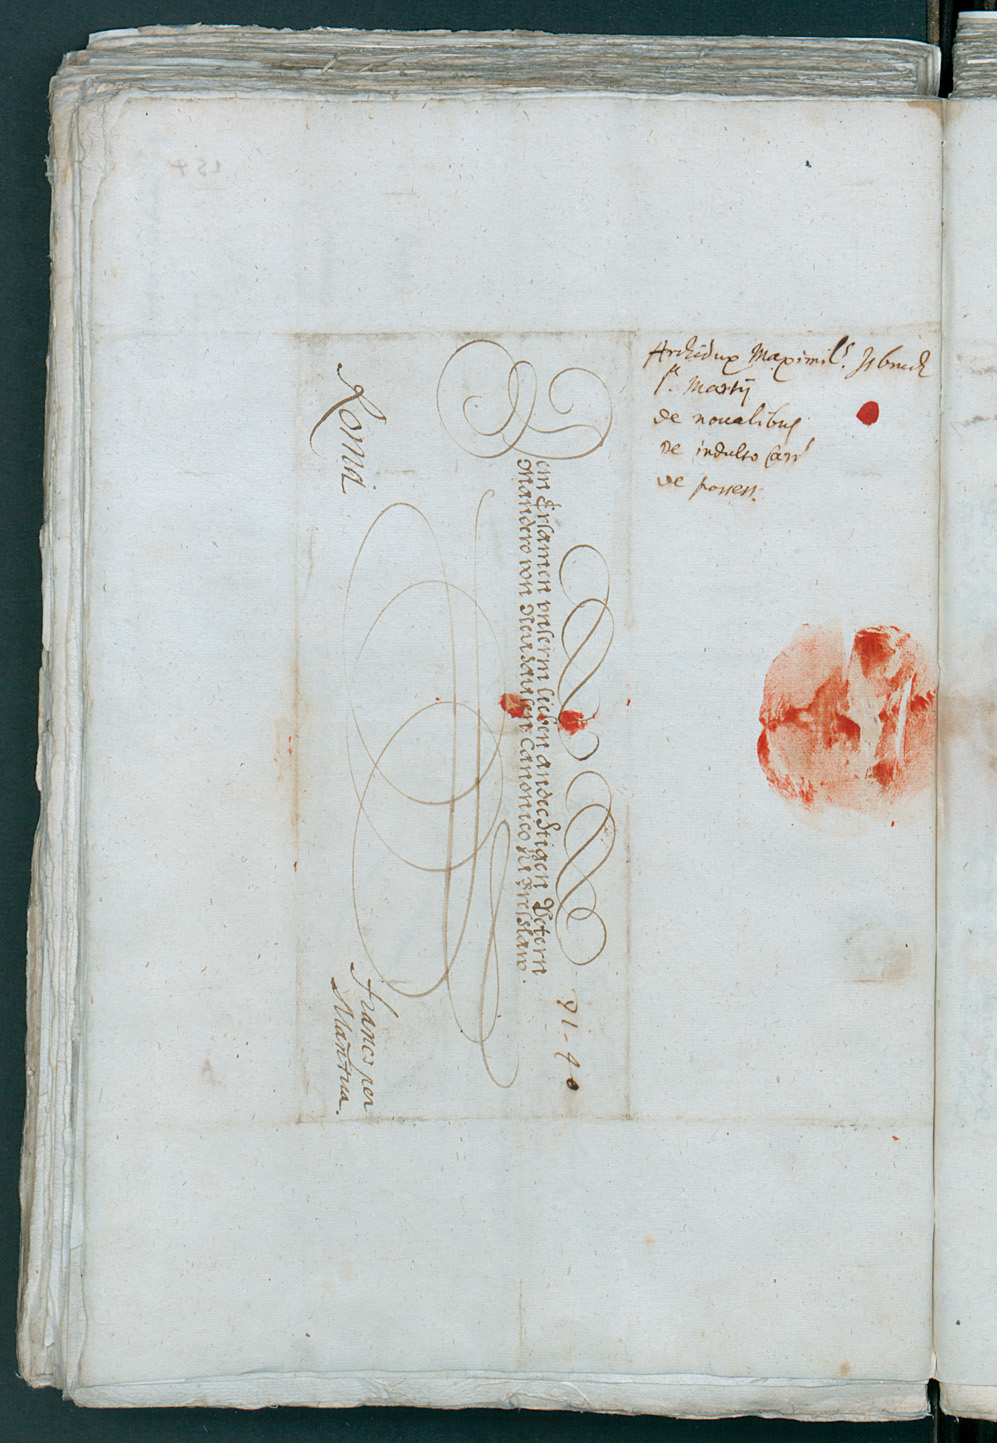 Archidux Maximil. Isbruck
1ª. Martij
de noualibus
de indulto Car.
de possess:
Dem Ersamen vnserm lieben andechtigen Petern
Mandero von Neuhausen Canonico Zu Bresslaw.
Roma
franco per
Mantua.